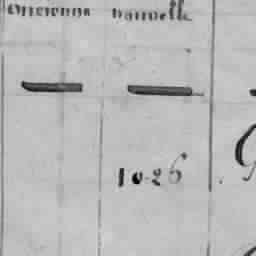 ancienne nouvelle
10.26
G